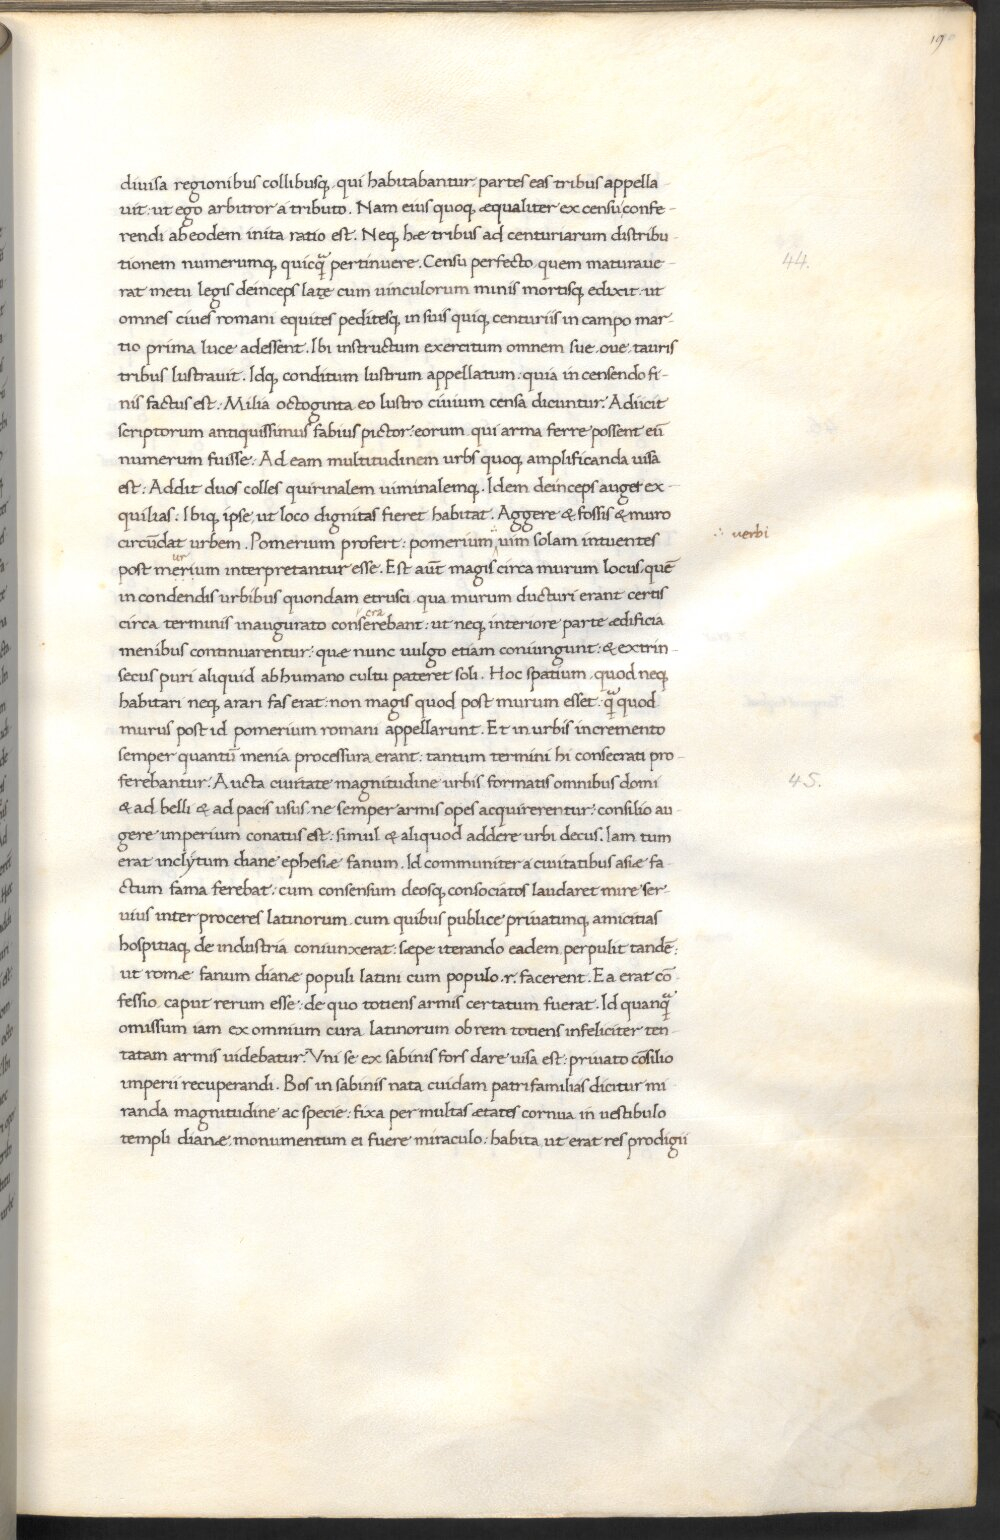 19
diuisa regionibus collibusq, qui habitabantur partes eas tribus appella-
uit: ut ego arbitror a tributo. Nam eius quoq, æqualiter ex censu confe-
rendi ab eodem inita ratio est. Neq, hæ tribus ad centuriarum distribu-
tionem numerumq, quicq̃ pertinuere. Censu perfecto quem maturaue-
44.
rat metu legis deinceps late cum uinculorum minis mortisq, edixit: ut
omnes ciues romani equites peditesq, in suis quiq, centuriis in campo mar-
tio prima luce adessent. Ibi instructum exercitum omnem sue. oue. tauris
tribus lustrauit. Idq, conditum lustrum appellatum: quia in censendo fi-
nis factus est: Milia octoginta eo lustro ciuium censa dicuntur. Adiicit
scriptorum antiquissimus fabius pictor eorum qui arma ferre possent eū
numerum fuisse: Ad eam multitudinem urbs quoq, amplificanda uisa
est: Addit duos colles quirinalem uiminalemq,. Idem deinceps auget ex-
quilias: Ibiq, ipse ut loco dignitas fieret habitat. Aggere & fossis & muro
circūdat urbem. Pomerium profert: pomerium uim solam intuentes
∴ uerbi
ur
post merium interpretantur esse. Est aūt magis circa murum locus, quē
in condendis urbibus quondam etrusci qua murum ducturi erant certis
cra
circa terminis inaugurato conserebant: ut neq, interiore parte ædificia
menibus continuarentur: quæ nunc uulgo etiam coniungunt: & extrin-
secus puri aliquid ab humano cultu pateret soli. Hoc spatium quod neq,
habitari neq, arari fas erat: non magis quod post murum esset: q̃ quod
murus post id pomerium romani appellarunt. Et in urbis incremento
semper quantū menia processura erant: tantum termini hi consecrati pro-
ferebantur. Aucta ciuitate magnitudine urbis formatis omnibus domi
45.
& ad belli & ad pacis usus: ne semper armis opes acquirerentur: consilio au-
gere imperium conatus est: simul & aliquod addere urbi decus. Iam tum
erat inclytum diane ephesiæ fanum. Id communiter a ciuitatibus asiæ fa-
ctum fama ferebat: cum consensum deosq, consociatos laudaret mire ser-
uius inter proceres latinorum cum quibus publice priuatimq, amicitias
hospitiaq, de industria coniunxerat: sæpe iterando eadem perpulit tandē:
ut romæ fanum dianæ populi latini cum populo .r. facerent. Ea erat cō
fessio caput rerum esse: de quo totiens armis certatum fuerat. Id quanq̃
omissum iam ex omnium cura latinorum ob rem totiens infeliciter ten-
tatam armis uidebatur: Vni se ex sabinis fors dare uisa est: priuato cōsilio
imperii recuperandi. Bos in sabinis nata cuidam patrifamilias dicitur mi-
randa magnitudine ac specie: fixa per multas ætates cornua in uestibulo
templi dianæ monumentum ei fuere miraculo: habita ut erat res prodigii